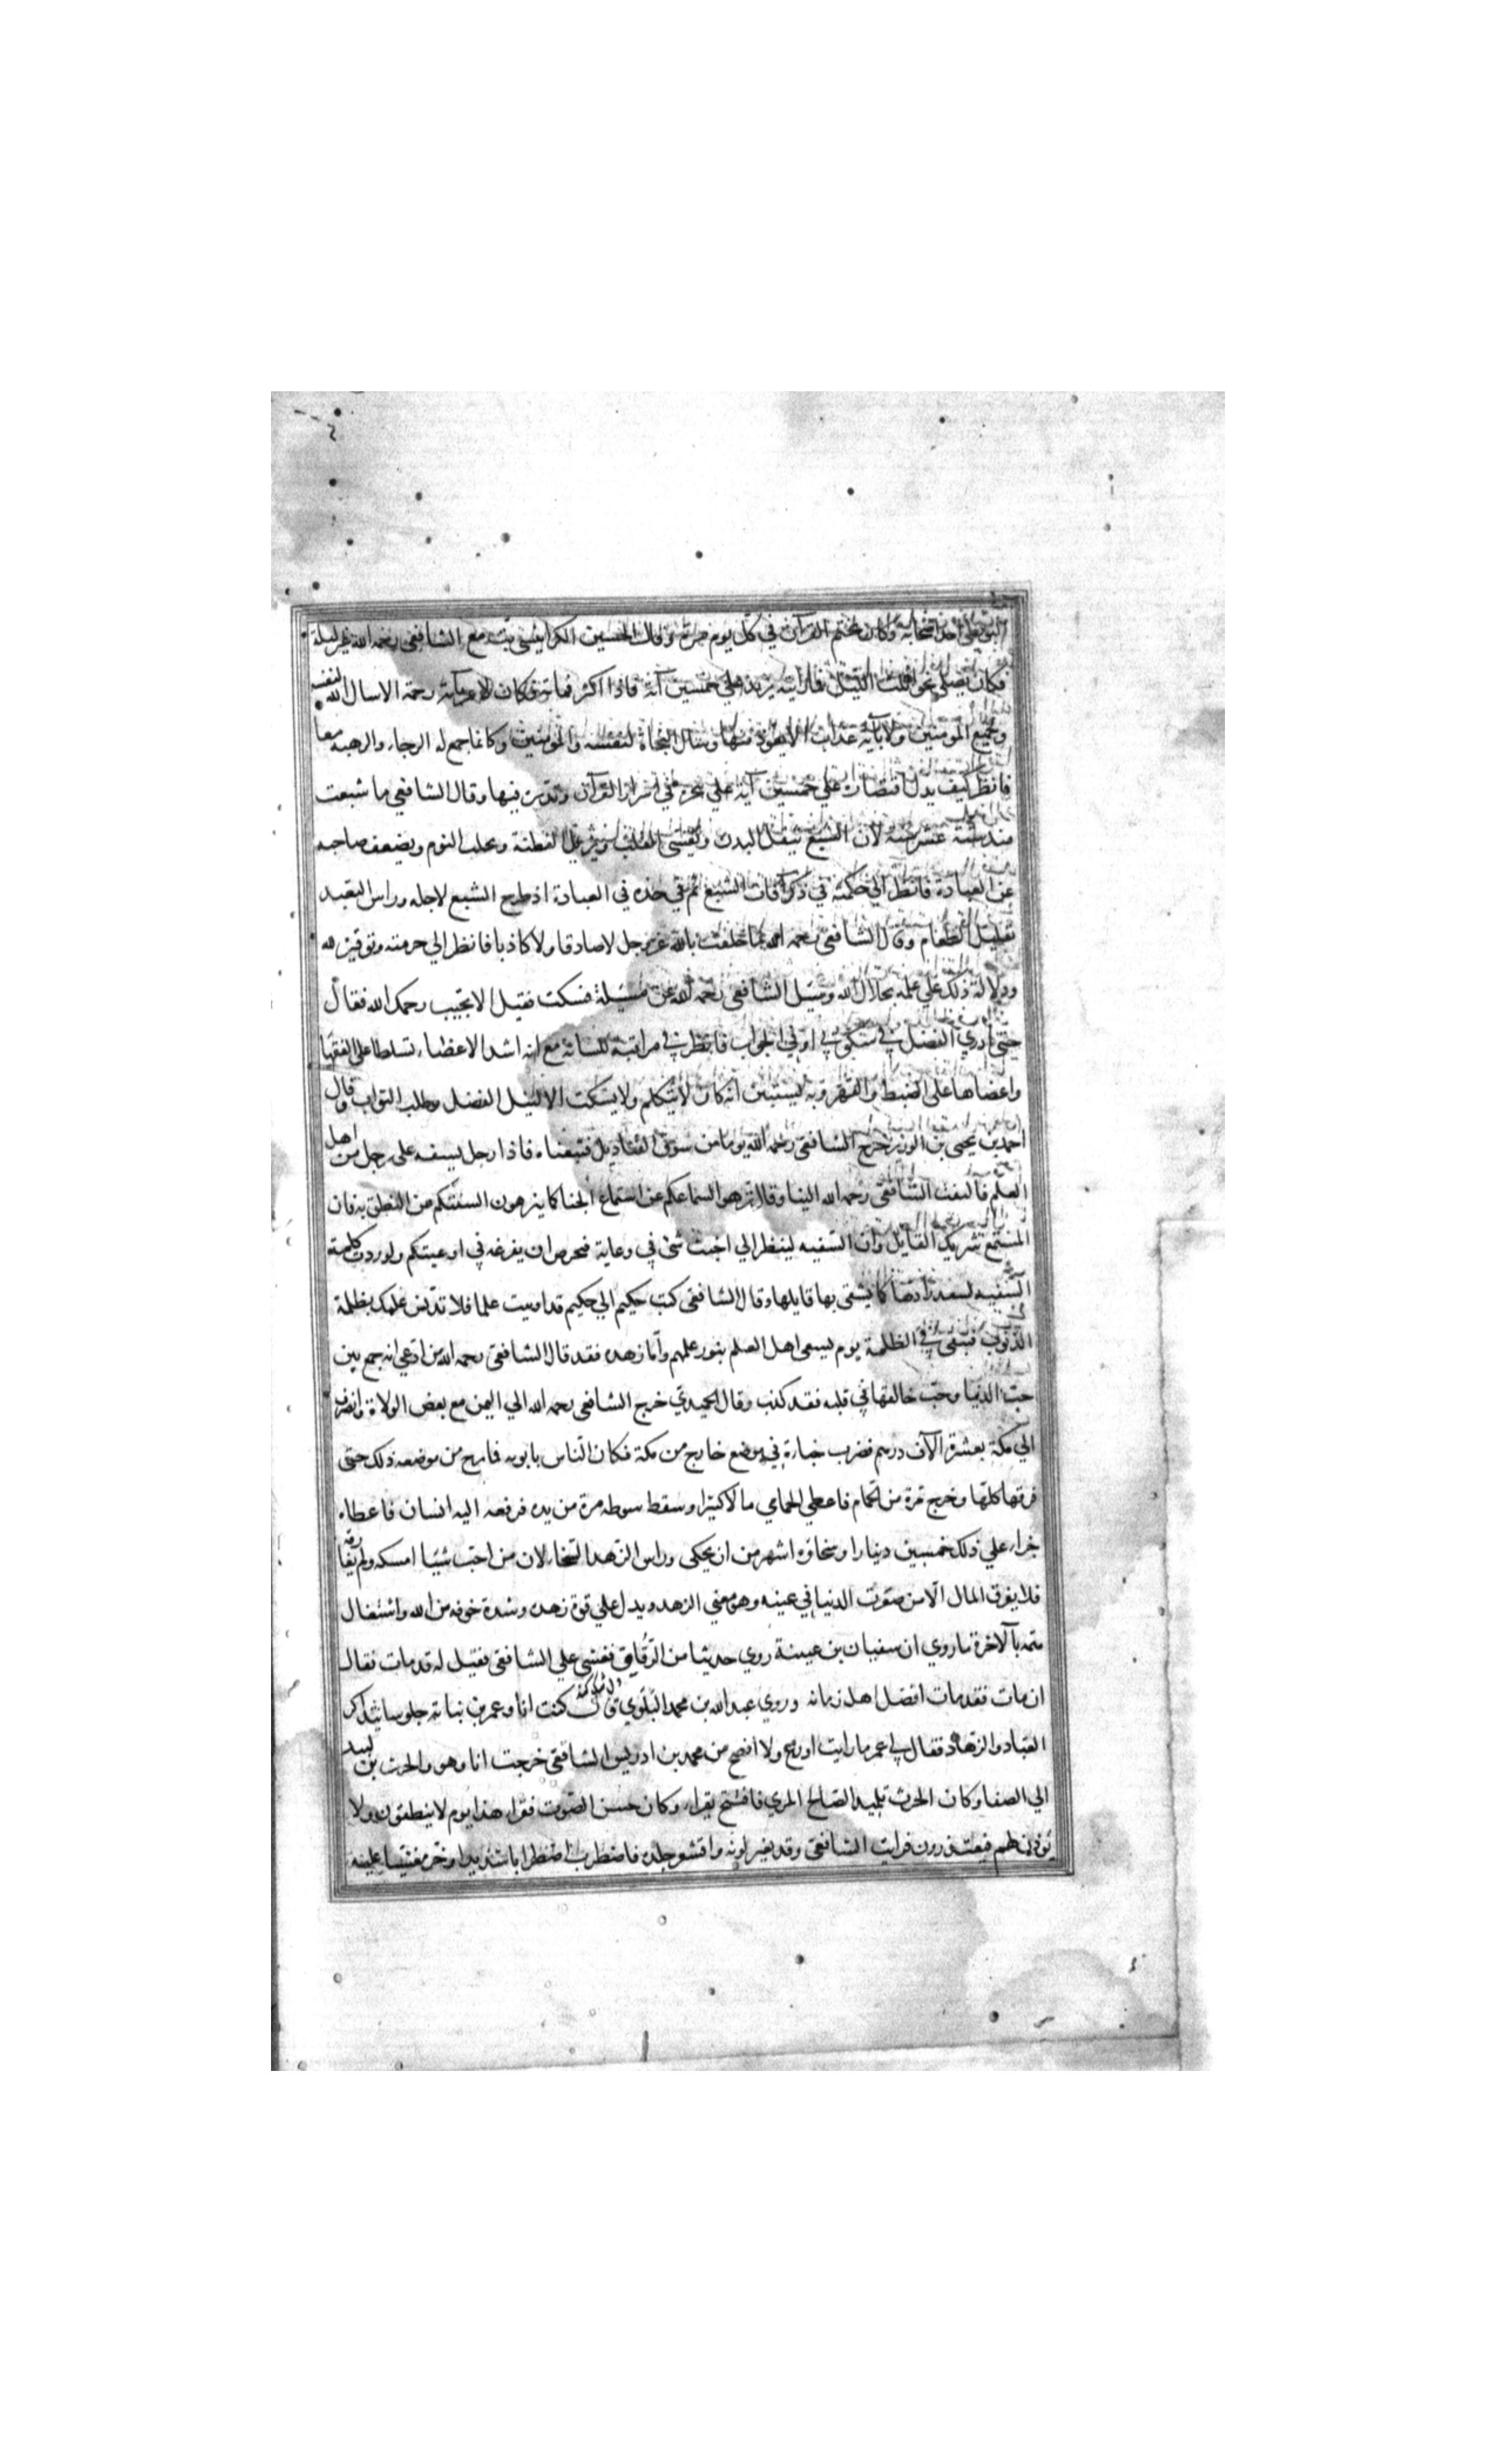 البويطي احد اصحابه وكان يختم القرآن في كل يوم مرة وقال الحسين الكرابيسي بت مع الشافعي رحمه الله غير ليلة
فكان يصلي نحوا من ثلث الليل فما رايته يزيد على خمسين آية فاذا اكثر فماية وكان لا يمر بآية رحمة الا سال الله لنفسه
ولجميع المومنين ولا بآية عذاب الا تعوذ منها وسال النجاة لنفسه والمومنين وكانما جمع له الرجاء والرهبة معا
فانظر كيف يدل اقتصاره علي خمسين آية علي تبحره في اسرار القرآن وتدبره فيها وقال الشافعي ما شبعت
منذ ستة عشر سنة لان الشبع يثقل البدن ويقسي القلب ويزيل الفطنة ويجلب النوم ويضعف صاحبه
عن العبادة فانظر الي حكمته في ذكر آفات الشبع ثم في جده في العبادة اذ طرح الشبع لاجله وراس التعبد
تقليل الطعام وقال الشافعي رحمه الله ما حلفت بالله عز وجل لا صادقا ولا كاذبا فانظر الي حرمته وتوقيره لله
ودلالة ذلك علي علمه بجلال الله وسئل الشافعي رحمه الله عن مسئلة فسكت فقيل الا تجيب رحمك الله فقال
حتى ادري الفضل في سكوتي او في الجواب فانظر في مراقبته للسانه مع انه اشد الاعضاء تسلطا على الفقها
واعصاها على الضبط والقهر وبه يستبين انه كان لا يتكلم ولا يسكت الا لنيل الفضل وطلب الثواب وقال
احمد بن يحيى بن الوزير خرج الشافعي رحمه الله يوما من سوق القناديل فتبعناه فاذا رجل يسفه على رجل من اهل
العلم فالتفت الشافعي رحمه الله الينا وقال نزهوا اسماعكم عن استماع الخنا كما ينزهون السنتكم من النطق به فان
المستمع شريك القايل وان السفيه لينظر الي اخبث شئ في وعايه فيحرص ان يفرغه في اوعيتكم ولو ردت كلمة
السفيه لسعد رادها كما يشقى بها قايلها وقال الشافعي كتب حكيم الي حكيم قد اوتيت علما فلا تدنس علمك بظلمة
الذنوب فتبقى في الظلمة يوم يسعى اهل العلم بنور علمهم واما زهده فقد قال الشافعي رحمه الله من ادعي انه جمع بين
حب الدنيا وحب خالقها في قلبه فقد كذب وقال الحميدي خرج الشافعي رحمه الله الي اليمن مع بعض الولاة وانصرف
الي مكة بعشرة الآف درهم فضرب خباؤه في موضع خارج من مكة فكان الناس ياتونه فما برح من موضعه ذلك حتى
فرقها كلها وخرج مرة من الحمام فاعطي الحمامي مالا كثيرا وسقط سوطه مرة من يده فرفعه اليه انسان فاعطاه
جزاء علي ذلك خمسين دينارا وسخاوة اشهر من ان يحكى وراس الزهد السخا لان من احب شييا امسكه ولم يفارقه
فلا يفرق المال الا من صغرت الدنيا في عينه وهو معني الزهد ويدل علي قوة زهده وشدة خوفه من الله واشتغال
همته بالآخرة ما روي ان سفيان بن عيينة روي حديثا من الرقايق فغشي علي الشافعي فقيل له قد مات فقال
ان مات فقد مات افضل اهل زمانه وروي عبد الله بن محمد البلوي قال كنت انا وعمر بن نباتة جلوسا نتذاكر
العباد والزهاد فقال لي عمر ما رايت اورع ولا افصح من محمد بن ادريس الشافعي خرجت انا وهو والحرث بن لبيد
الي الصفا وكان الحرث تلميذا لصالح المري فافتتح يقراء وكان حسن الصوت فقراء هذا يوم لا ينطقون ولا
يوذن لهم فيعتذرون فرايت الشافعي وقد تغير لونه واقشعر جلده فاضطرب اضطرابا شديدا وخر مغشيا عليه